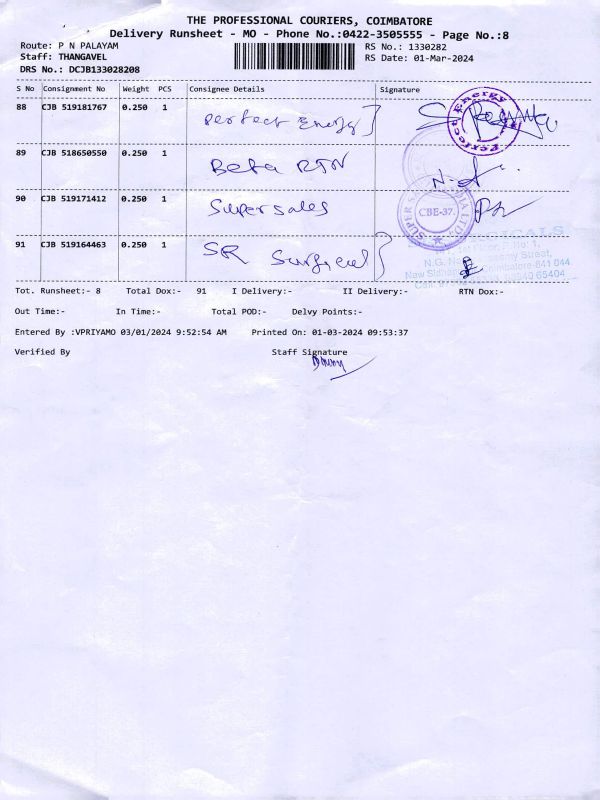 THE PROFESSIONAL COURIERS, COIMBATORE
Delivery Runsheet - MO - Phone No.:0422-3505555 - Page No.:8
Route: P N PALAYAM
RS No.: 1330282
Staff: THANGAVEL
RS Date: 01-Mar-2024
DRS No.: DCJB133028208
S No Consignment No Weight PCS Consignee Details Signature
88 CJB 519181767 0.250 1 Perfect Energy
Perfect Energy
89 CJB 518650550 0.250 1 Beta RTN
90 CJB 519171412 0.250 1 Supersales
CBE-37.
91 CJB 519164463 0.250 1 SR Surgical
Tot. Runsheet:- 8 Total Dox:- 91 I Delivery:- II Delivery:- RTN Dox:-
Out Time:- In Time:- Total POD:- Delvy Points:-
Entered By :VPRIYAMO 03/01/2024 9:52:54 AM Printed On: 01-03-2024 09:53:37
Verified By Staff Signature